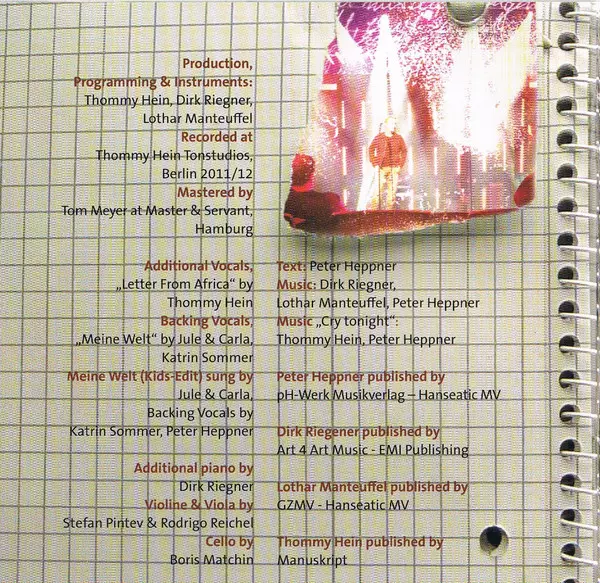 Production,
Programming & Instruments:
Thommy Hein, Dirk Riegner,
Lothar Manteuffel
Recorded at
Thommy Hein Tonstudios,
Berlin 2011/12
Mastered by
Tom Meyer at Master & Servant,
Hamburg
Additional Vocals,
„Letter From Africa“ by
Thommy Hein
Backing Vocals,
„Meine Welt“ by Jule & Carla,
Katrin Sommer
Meine Welt (Kids-Edit) sung by
Jule & Carla,
Backing Vocals by
Katrin Sommer, Peter Heppner
Additional piano by
Dirk Riegner
Violine & Viola by
Stefan Pintev & Rodrigo Reichel
Cello by
Boris Matchin
Text: Peter Heppner
Music: Dirk Riegner,
Lothar Manteuffel, Peter Heppner
Music „Cry tonight“:
Thommy Hein, Peter Heppner
Peter Heppner published by
pH-Werk Musikverlag – Hanseatic MV
Dirk Riegener published by
Art 4 Art Music - EMI Publishing
Lothar Manteuffel published by
GZMV - Hanseatic MV
Thommy Hein published by
Manuskript